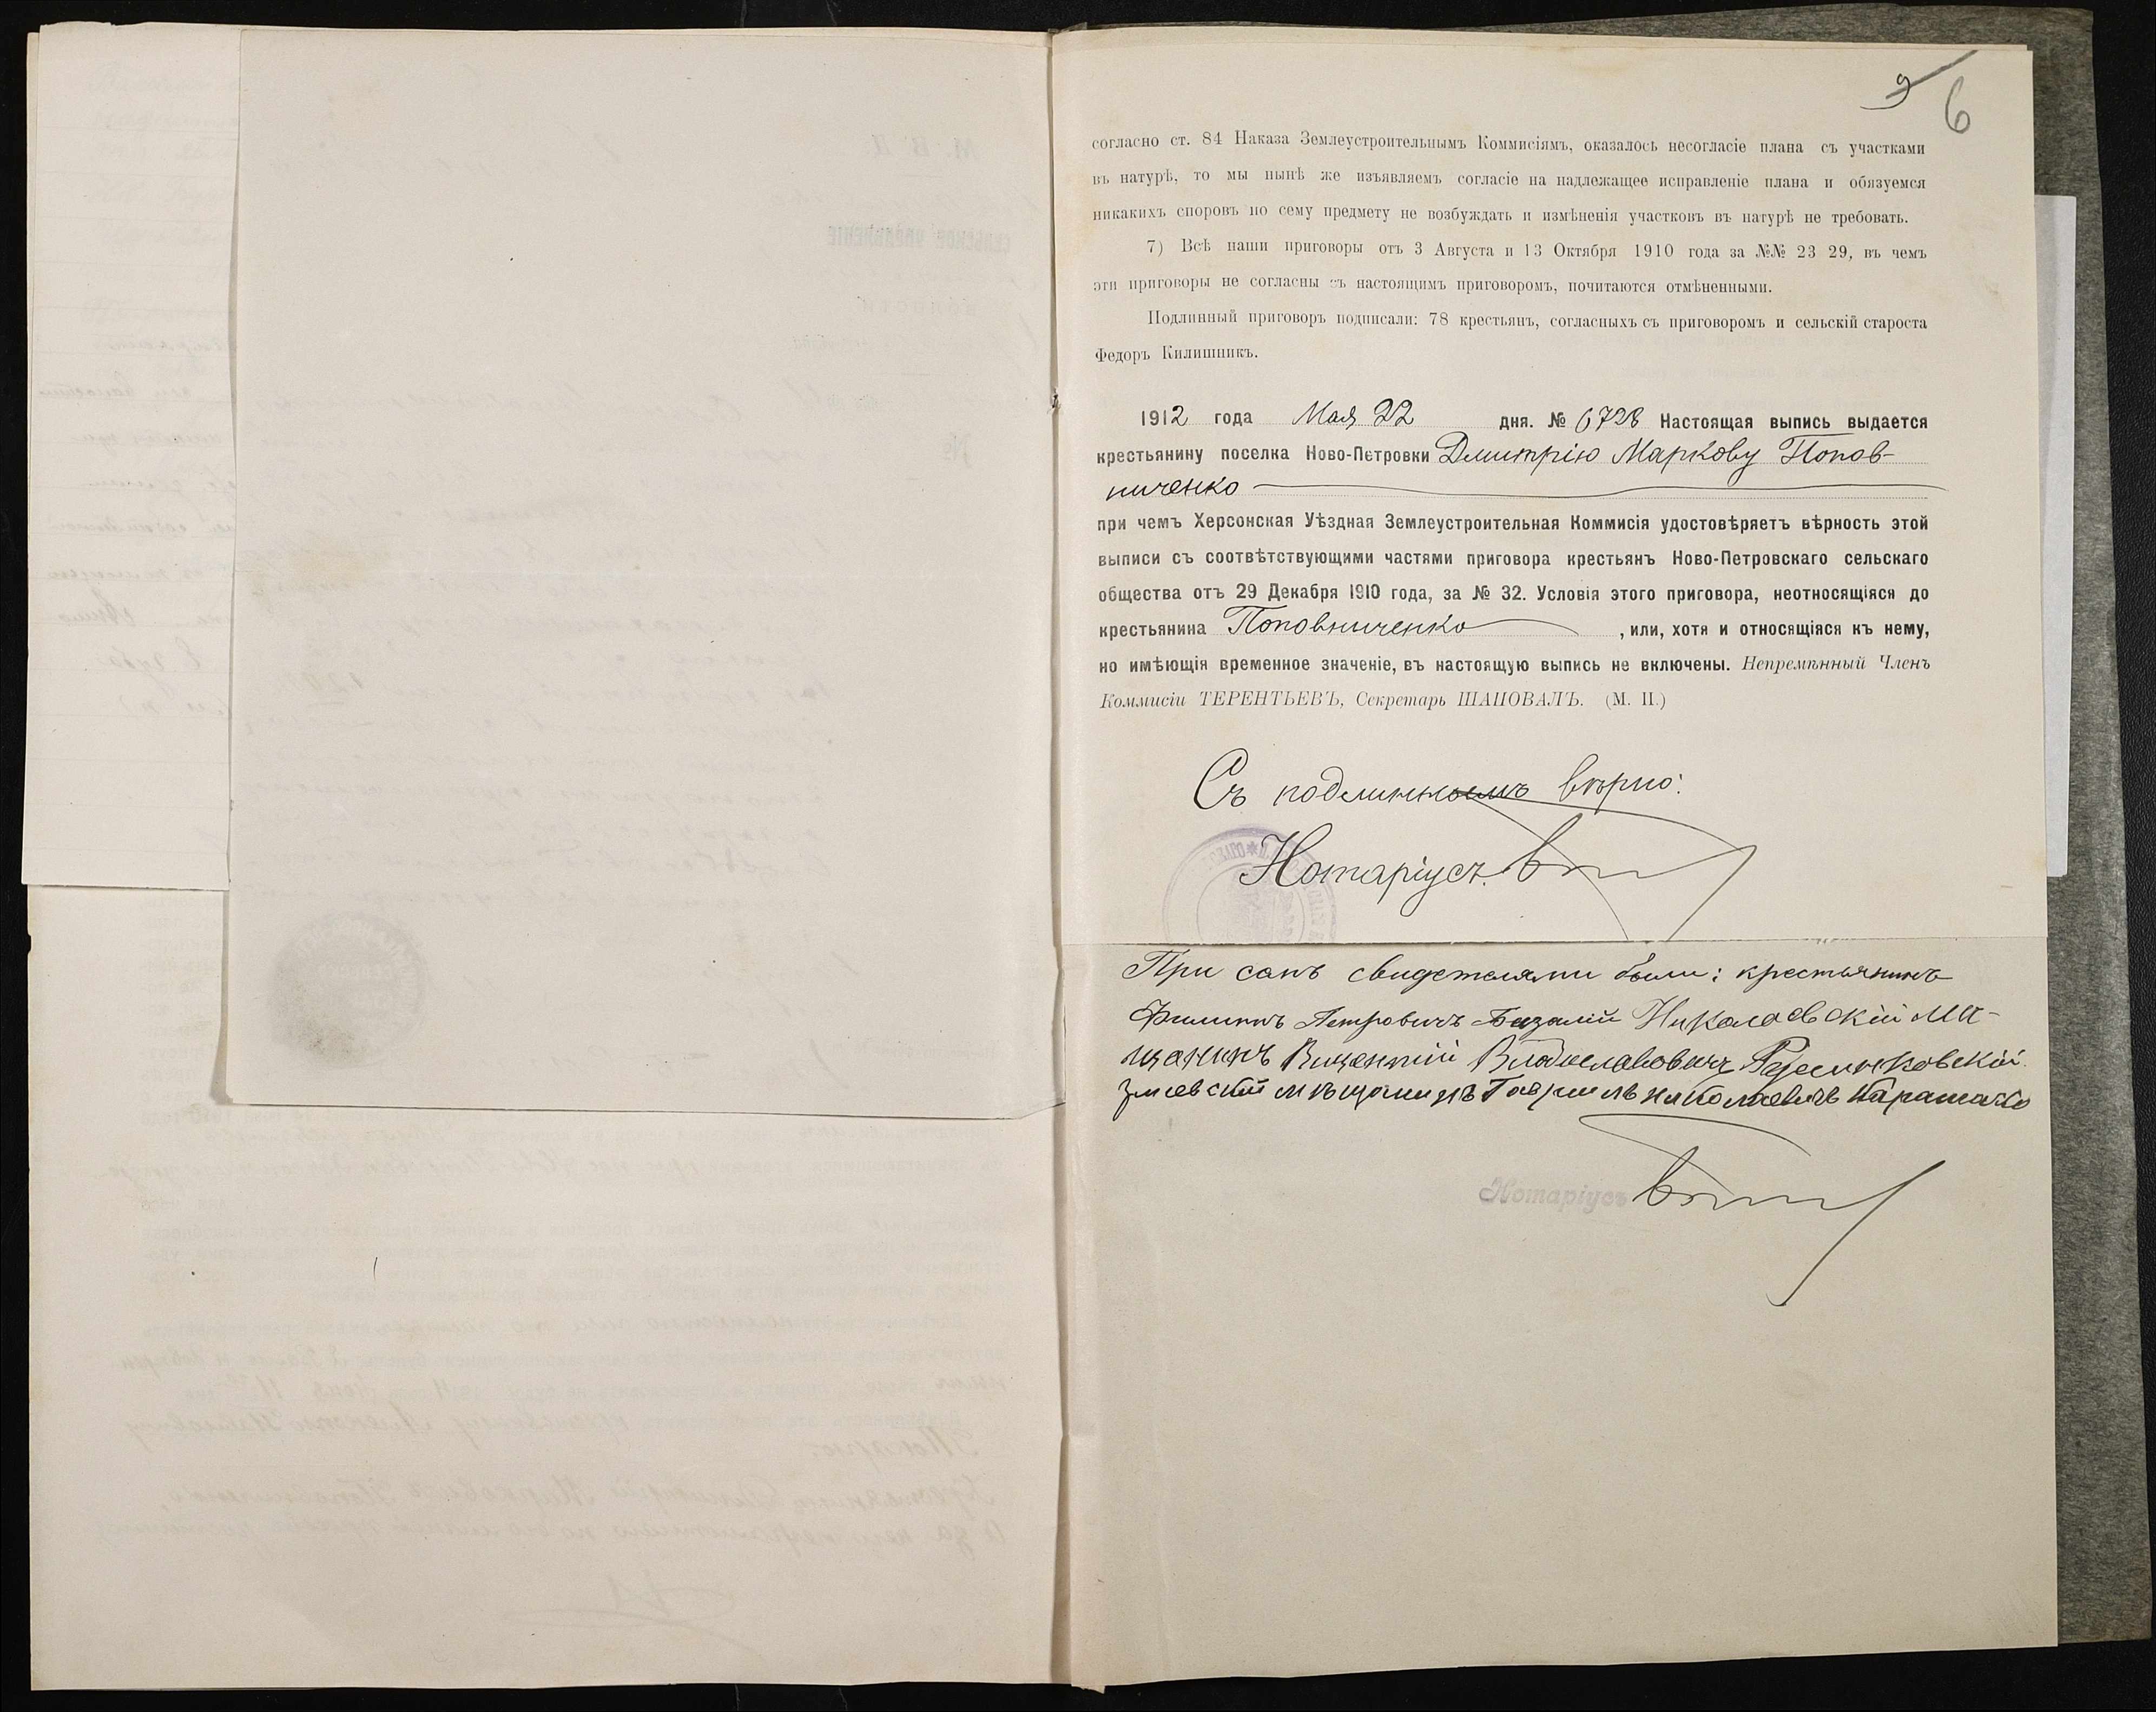 9
6
согласно ст. 84 Наказа Землеустроительнымъ Коммисіямъ, оказалось несогласіе плана съ участками
въ натурѣ, то мы нынѣ же изъявляемъ согласіе на надлежащее исправленіе плана и обязуемся
никакихъ споровъ по сему предмету не возбуждать и измѣненія участковъ въ натурѣ не требовать.
7) Всѣ наши приговоры отъ 3 Августа и 13 Октября 1910 года за №№ 23 29, въ чемъ
эти приговоры не согласны съ настоящимъ приговоромъ, почитаются отмѣненными.
Подлинный приговоръ подписали: 78 крестьянъ, согласныхъ съ приговоромъ и сельскій староста
Федоръ Килишникъ.
1912 года Мая 22 дня. № 6728 Настоящая выпись выдается
крестьянину поселка Ново-Петровки Дмитрію Маркову Попов-
ниченко
при чемъ Херсонская Уѣздная Землеустроительная Коммисія удостовѣряетъ вѣрность этой
выписи съ соотвѣтствующими частями приговора крестьянъ Ново-Петровскаго сельскаго
общества отъ 29 Декабря 1910 года, за № 32. Условія этого приговора, неотносящіяся до
крестьянина Поповниченко, или, хотя и относящіяся къ нему,
но имѣющія временное значеніе, въ настоящую выпись не включены. Непремѣнный Членъ
Коммисіи ТЕРЕНТЬЕВЪ, Секретарь ШАПОВАЛЪ. (М. П.)
Съ подлиннымъ вѣрно:
Нотаріусъ
При семъ свидетелями были: крестьянинъ
Филиппъ Петровичъ Николаевскій мѣ-
щанинъ Викентій Владиславовичъ
Змиевский мѣщанинъ Гавриилъ Николаевичъ
Нотаріусъ